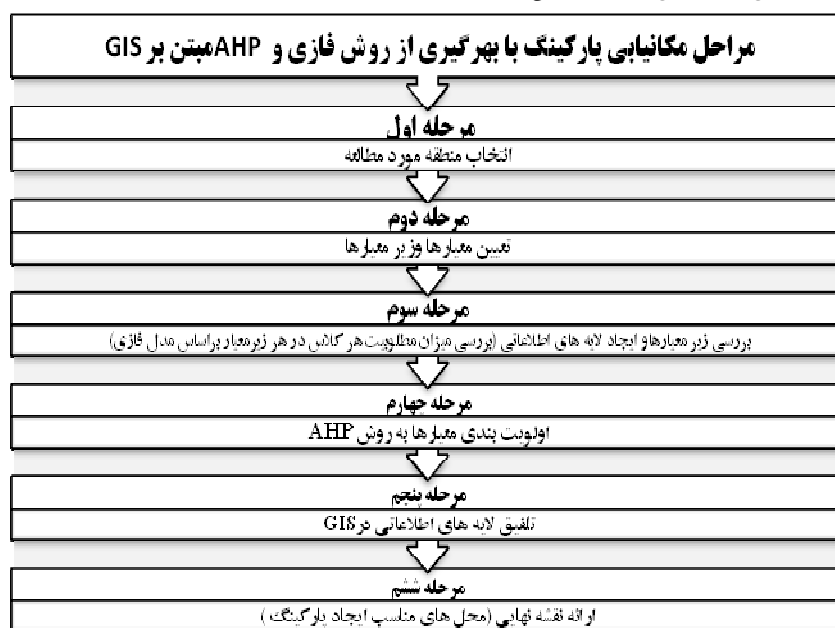 مراحل مکانیابی پارکینگ با بهرگیری از روش فازی و AHPمبتن بر GIS
مرحله اول
انتخاب منطقه مورد مطالعه
مرحله دوم
تعیین معیارها وزیر معیارها
مرحله سوم
بررسی زیر معیارهاو ایجاد لایه های اطلاعاتی (بررسی میزان مطلوبیت هر کلاس در هر زیرمعیار براساس مدل فازی)
مرحله چهارم
اولویت بندی معیارها به روش AHP
مرحله پنجم
تلفیق لایه های اطلاعاتی در GIS
مرحله ششم
ارائه نقشه نهایی (محل های مناسب ایجاد پارکینگ )